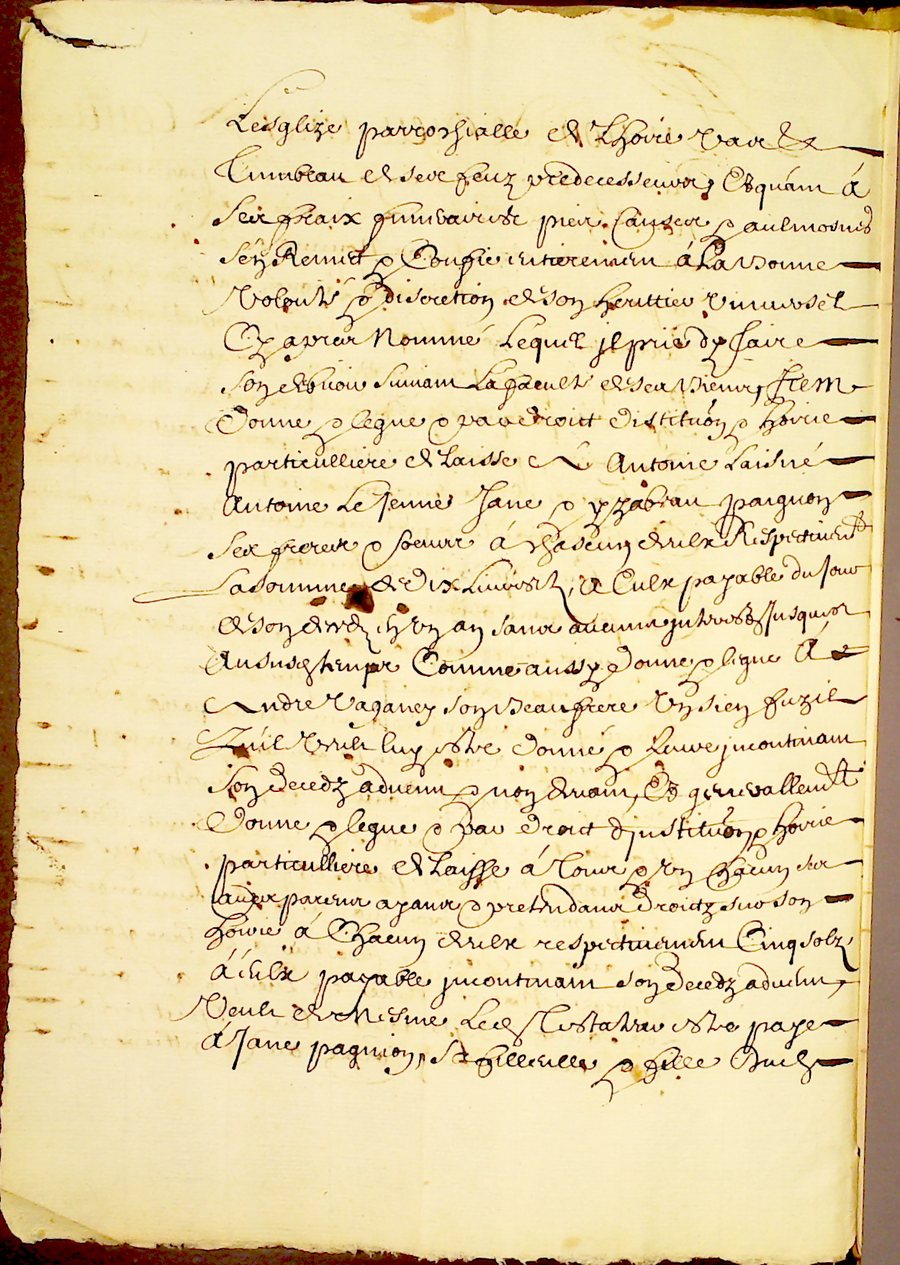 Lesglize parrochialle de Lhorie dans le
Tumbeau de ses feuz predecesseurs, Et quant à
Ses fraix funeraires pies causes & aulmosnes
Sen Remect & Confie entierement à La bonne
Volonté & discretion de son herittier Universel
Cy apres Nommé Lequel jl prie dy faire
Son debvoir suivant La faculté de ses biens, Item
Donne & legue & par droict distitution & hoirie
particulliere delaisse à Antoine Laisné
Antoine Le Jeune Jane & yzabeau pagnon
Ses freres & soeurs à chascun deulx Respectivemt
La somme de Dix Livres tz, à Eulx payable du Jour
de son decedz en Un an sans aucuns jntherestz Jusques
Au susd temps Comme aussy donne & legue A
Andre Paganey son beau frere Un sien fuzil
Quil Veult luy estre donné & livré jncontinant
Son decedz advenu & non devant, Et generallemt
Donne & legue & par droict djnstituõn & hoirie
particulliere delaisse à Tous & Un Chacun ses
aultres parens ayans & pretendans droictz sur son
hoirie à Chacun deulx respectivement Cinq solz
à Eulx payable jncontinant son decedz advenu,
Veult de Mesme Led Testateur estre payé
à Jane pagnion, Sa filleulle & fille Dud